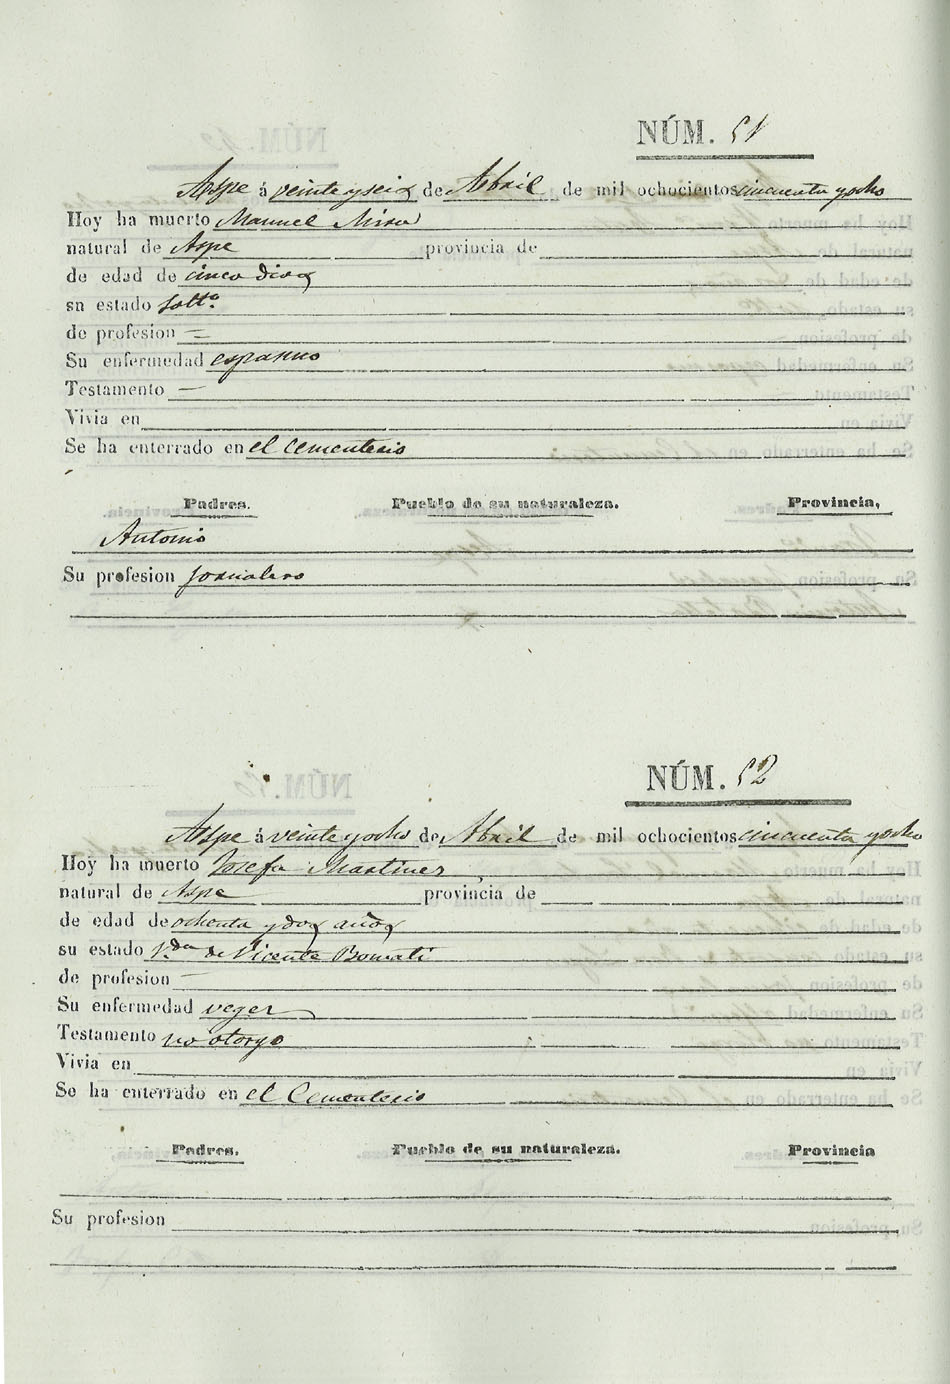 NÚM. 51
Aspe á veinte y seis de Abril de mil ochocientos cincuenta y ocho
Hoy ha muerto Manuel Miro
natural de Aspe provincia de
de edad de cinco dias
su estado soltº
de profesion =
Su enfermedad espasmo
Testamento —
Vivia en
Se ha enterrado en el cementerio
Padres. Pueblo de su naturaleza. Provincia,
Antonio
Su profesion jornalero
NÚM. 52
Aspe á veinte y ocho de Abril de mil ochocientos cincuenta y ocho
Hoy ha muerto Josefa Martinez
natural de Aspe provincia de
de edad de ochenta y dos años
su estado Vda de Vicente Bomati
de profesion —
Su enfermedad veger
Testamento no otorgo
Vivia en
Se ha enterrado en el Cementerio
Padres. Pueblo de su naturaleza. Provincia
Su profesion